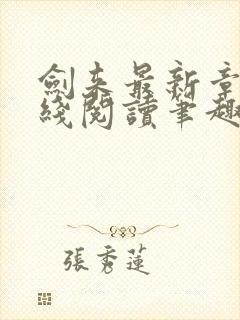 劍来最新章
綫閱讀筆趣
張秀蓮